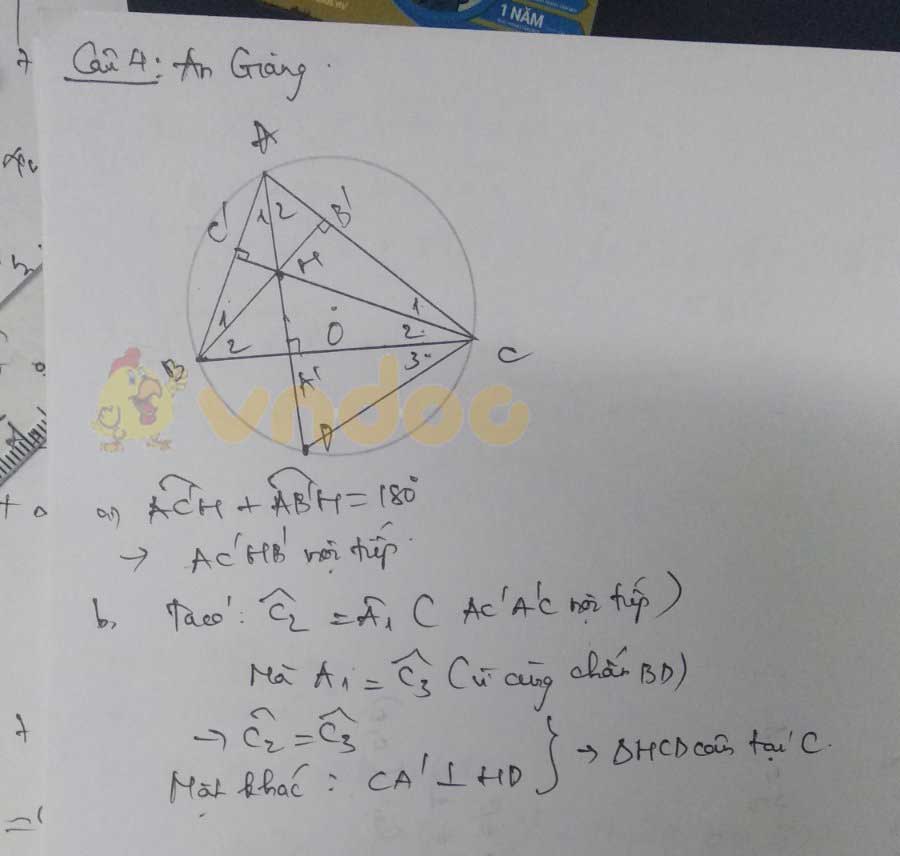 1 NĂM
Câu 4: An Giang.
A
C'
1 2
B'
H
1
2
O
1
2
3
B
A'
C
D
vndoc
a) AC'H + AB'H = 180°
→ AC'HB' nội tiếp.
b, Ta có: Ĉ₂ = Â₁ ( AC'A'C nội tiếp)
Mà A₁ = Ĉ₃ (vì cùng chắn BD)
→ Ĉ₂ = Ĉ₃
Mặt khác : CA' ⊥ HD
} → ΔHCD cân tại C.